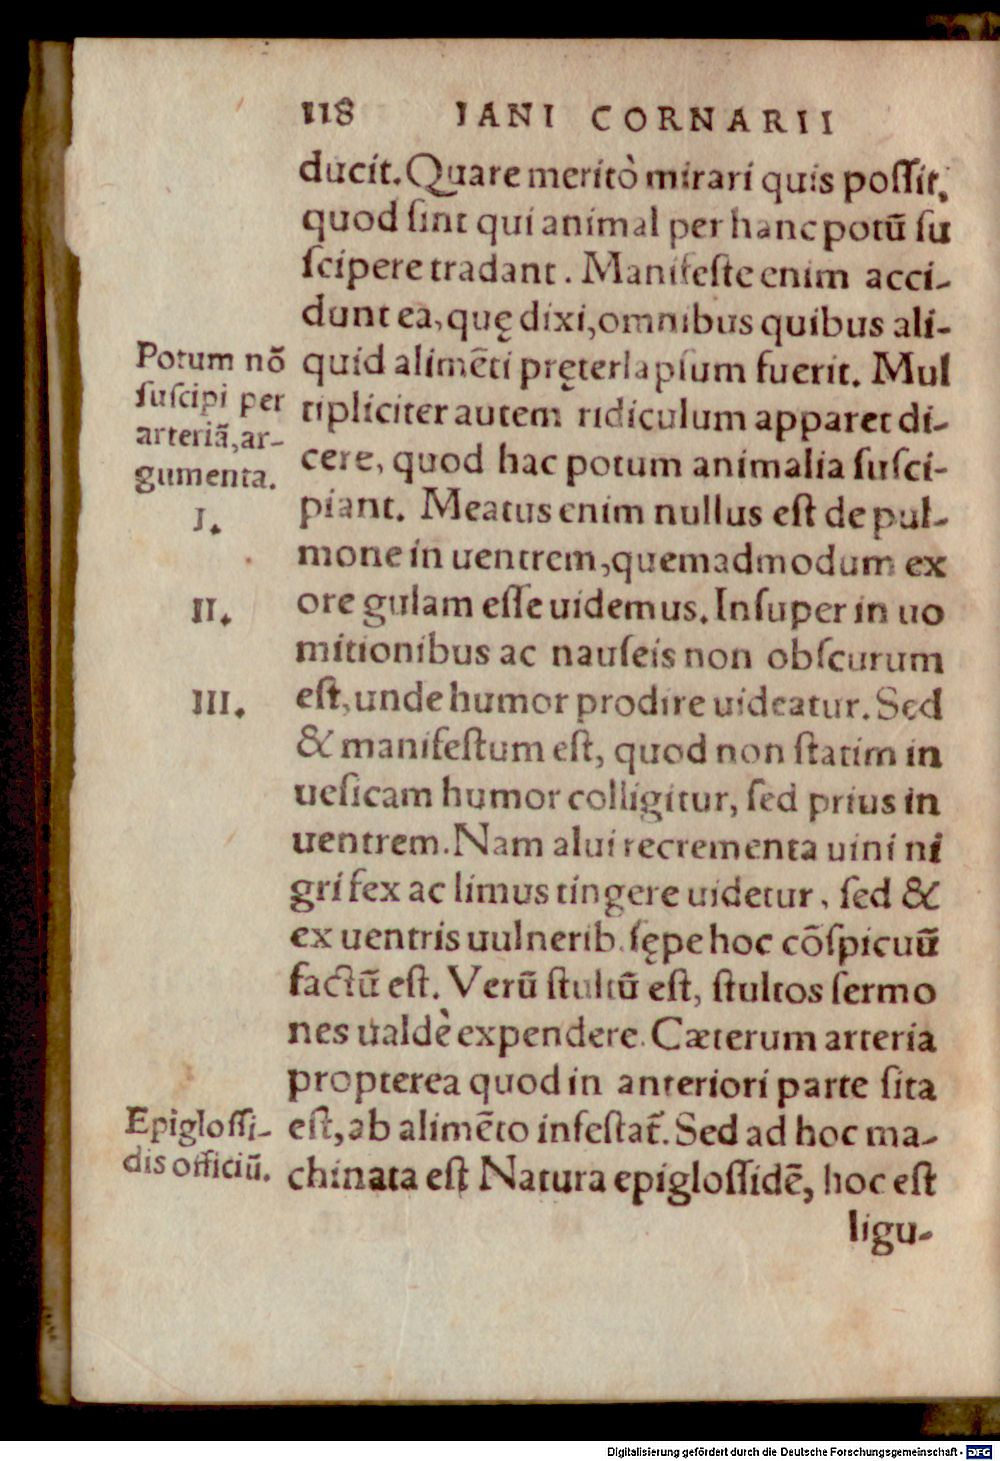 118 IANI CORNARII
ducit. Quare meritò mirari quis possit,
quod sint qui animal per hanc potũ su
scipere tradant. Manifeste enim acci-
dunt ea, quę dixi, omnibus quibus ali-
quid alimẽti pręterlapsum fuerit. Mul
tipliciter autem ridiculum apparet di-
cere, quod hac potum animalia susci-
piant. Meatus enim nullus est de pul-
mone in uentrem, quemadmodum ex
ore gulam esse uidemus. Insuper in uo
mitionibus ac nauseis non obscurum
est, unde humor prodire uideatur. Sed
& manifestum est, quod non statim in
uesicam humor colligitur, sed prius in
uentrem. Nam alui recrementa uini ni
gri fex ac limus tingere uidetur, sed &
ex uentris uulnerib. sępe hoc cõspicuũ
factũ est. Verũ stultũ est, stultos sermo
nes ualdè expendere. Cæterum arteria
propterea quod in anteriori parte sita
est, ab alimẽto infestat̃. Sed ad hoc ma-
chinata est Natura epiglossidẽ, hoc est
ligu-
Potum nõ
suscipi per
arteriã, ar-
gumenta.
I.
II.
III.
Epiglossi-
dis officiũ.
Digitalisierung gefördert durch die Deutsche Forschungsgemeinschaft - DFG